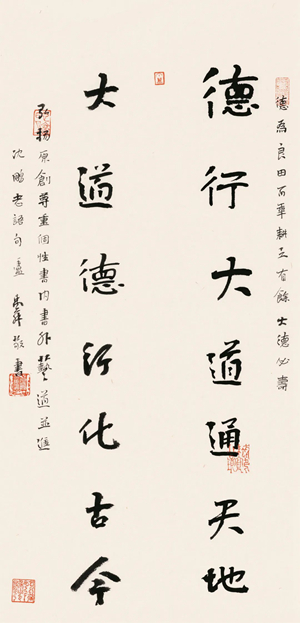 德為良田百年耕之有餘大德必壽
德行大道通天地
大道德行化古今
弘揚原創尊重個性書內書外藝道並進
沈鵬老語句敬書